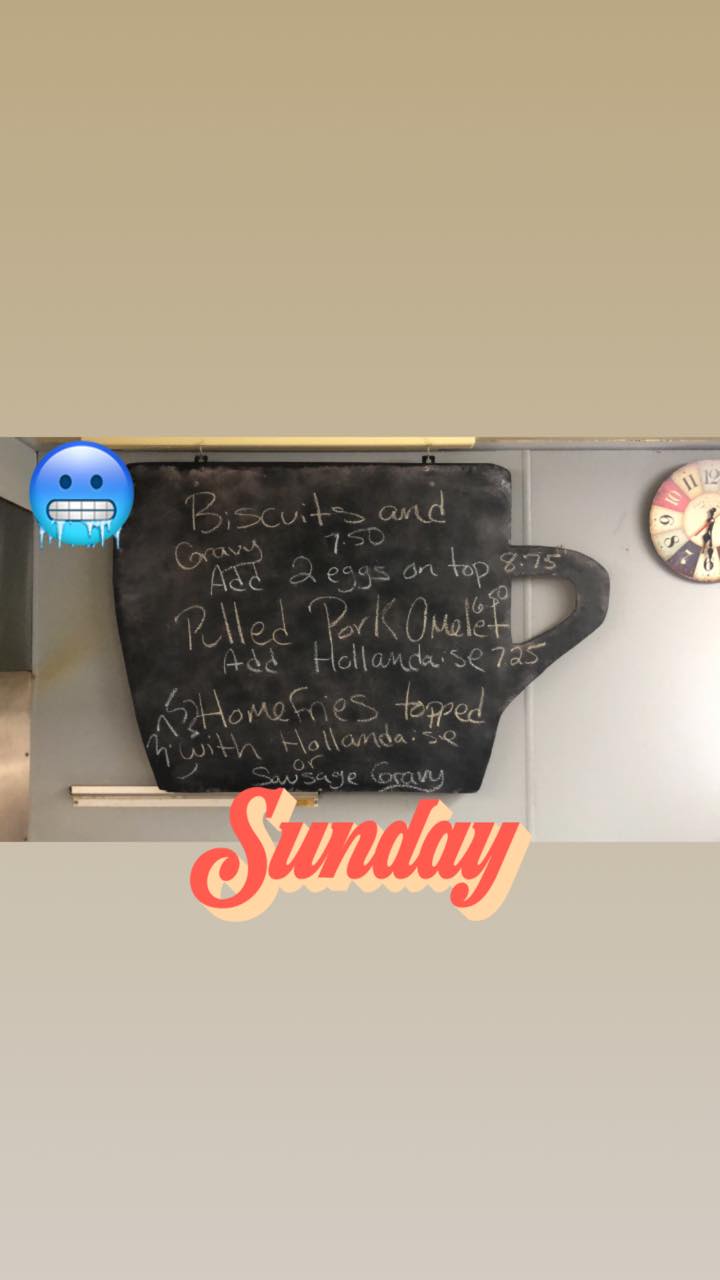 Biscuits and
Gravy 7.50
Add 2 eggs on top 8.75
Pulled Pork Omelet 6.50
Add Hollandaise 7.25
Homefries topped
with Hollandaise
or
Sausage Gravy
Sunday
11 12
10
9
8
7 6